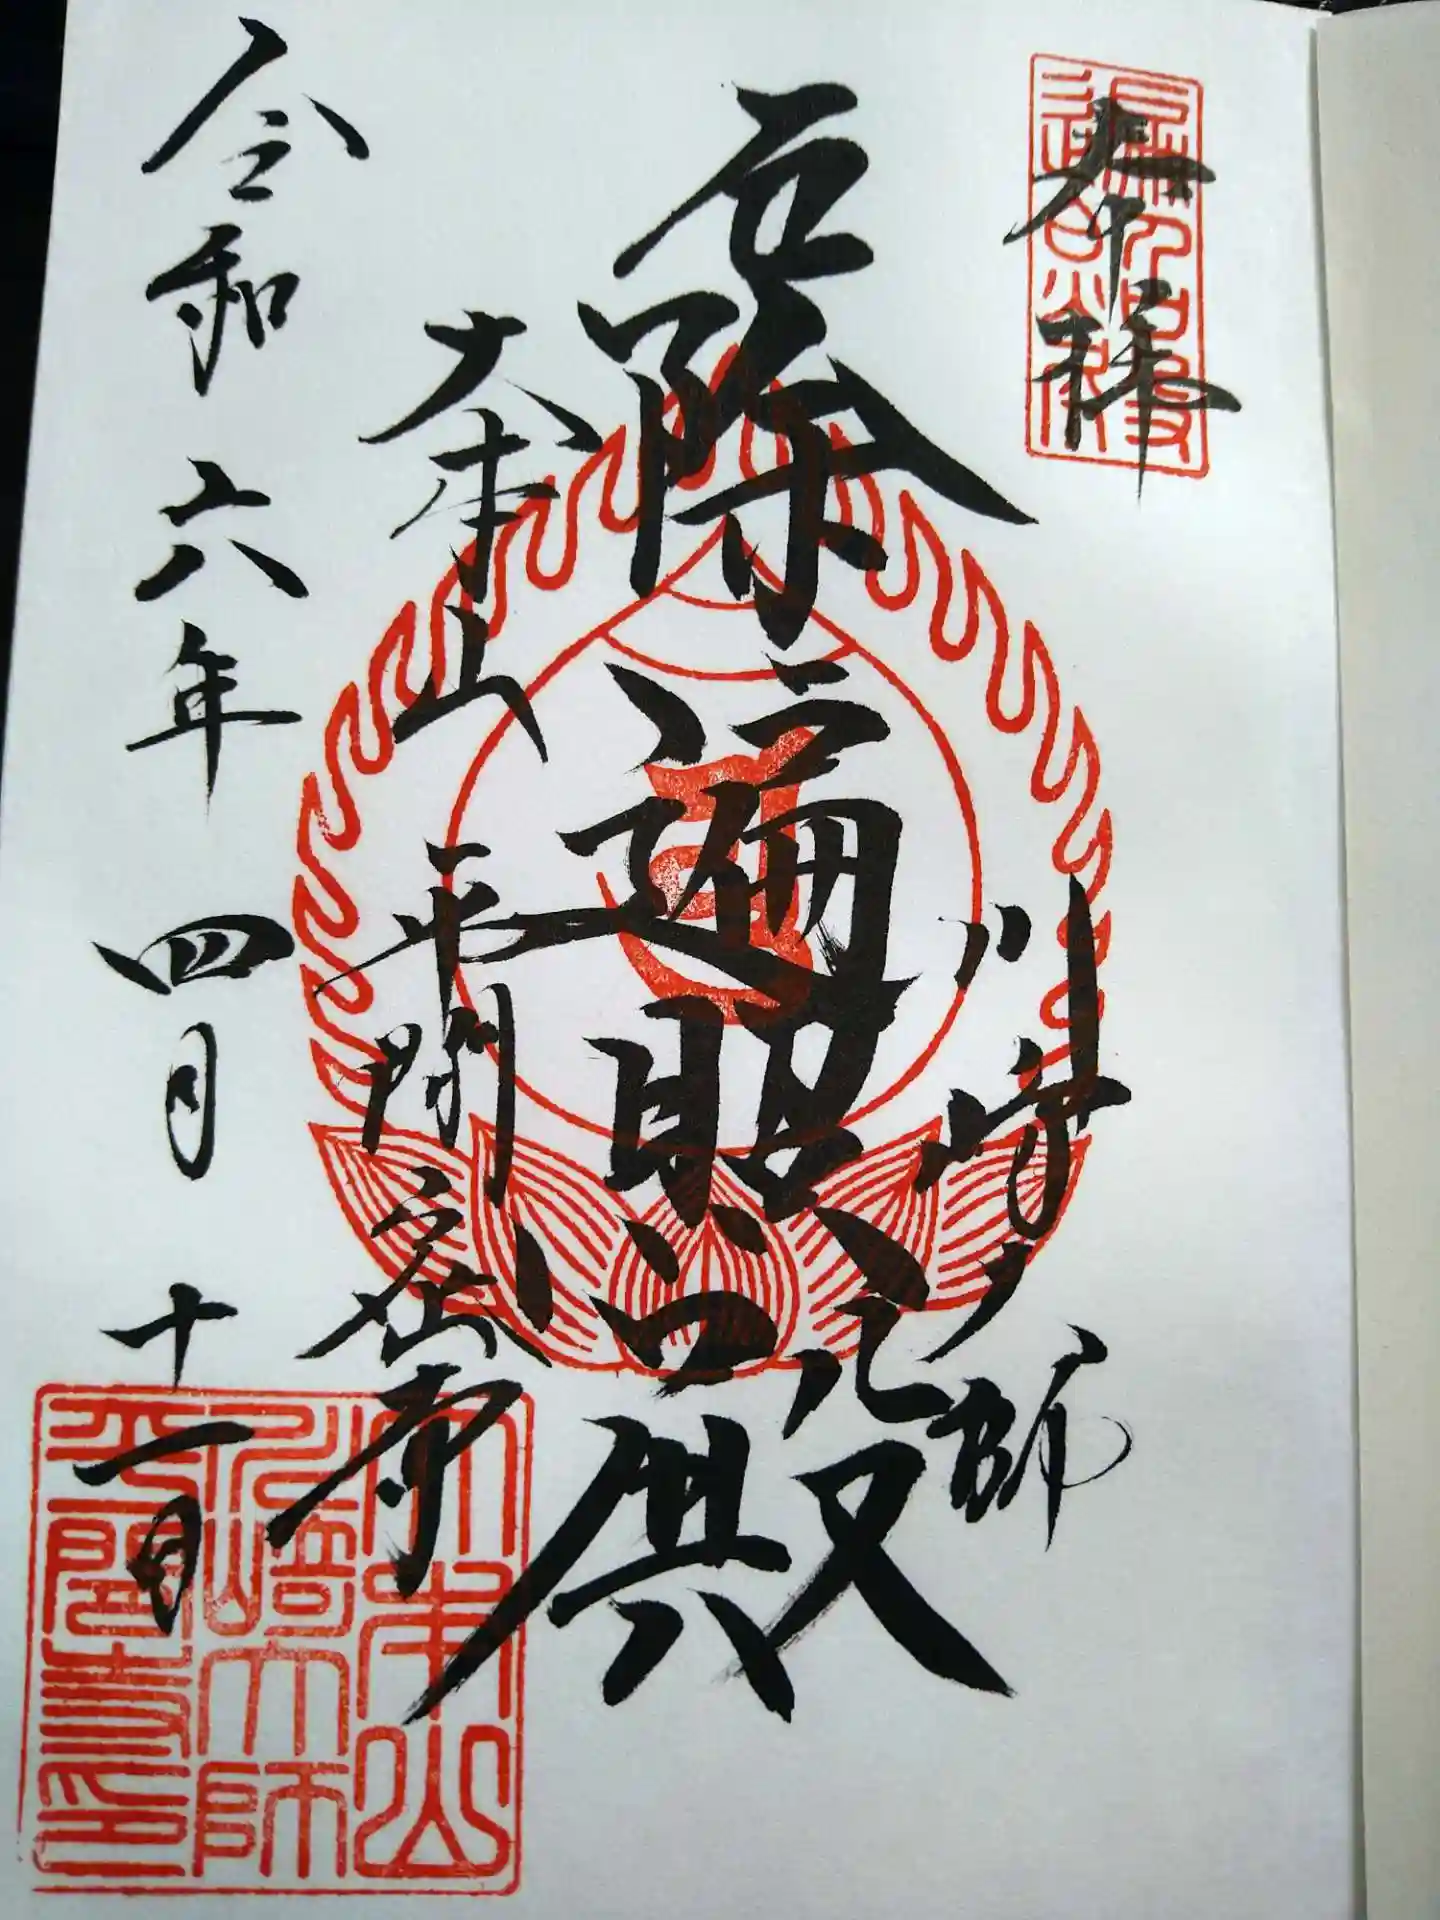 奉拝
川崎大師
厄除遍照殿
大本山平間寺
令和六年四月十二日
大本山
川崎大師
平間寺印